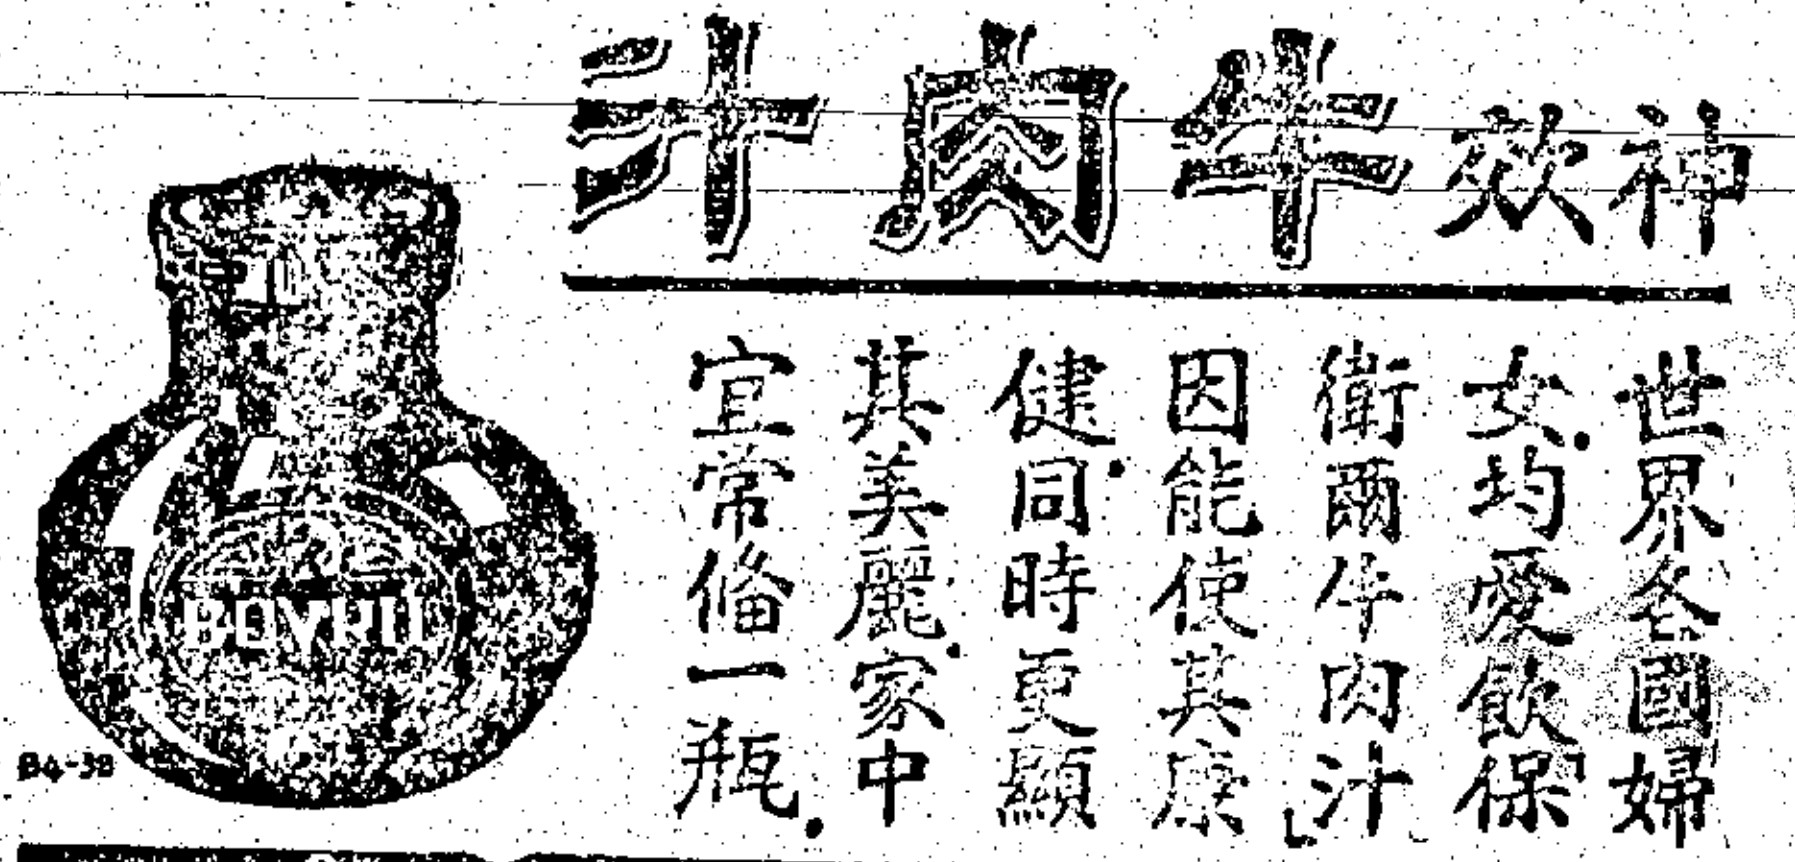 神效牛肉汁
世界各國婦
女.均愛飲「保
衛爾牛肉汁」
因能使其康
健.同時更顯
其美麗.家中
宜常備一瓶.
BOVRIL
B4-38